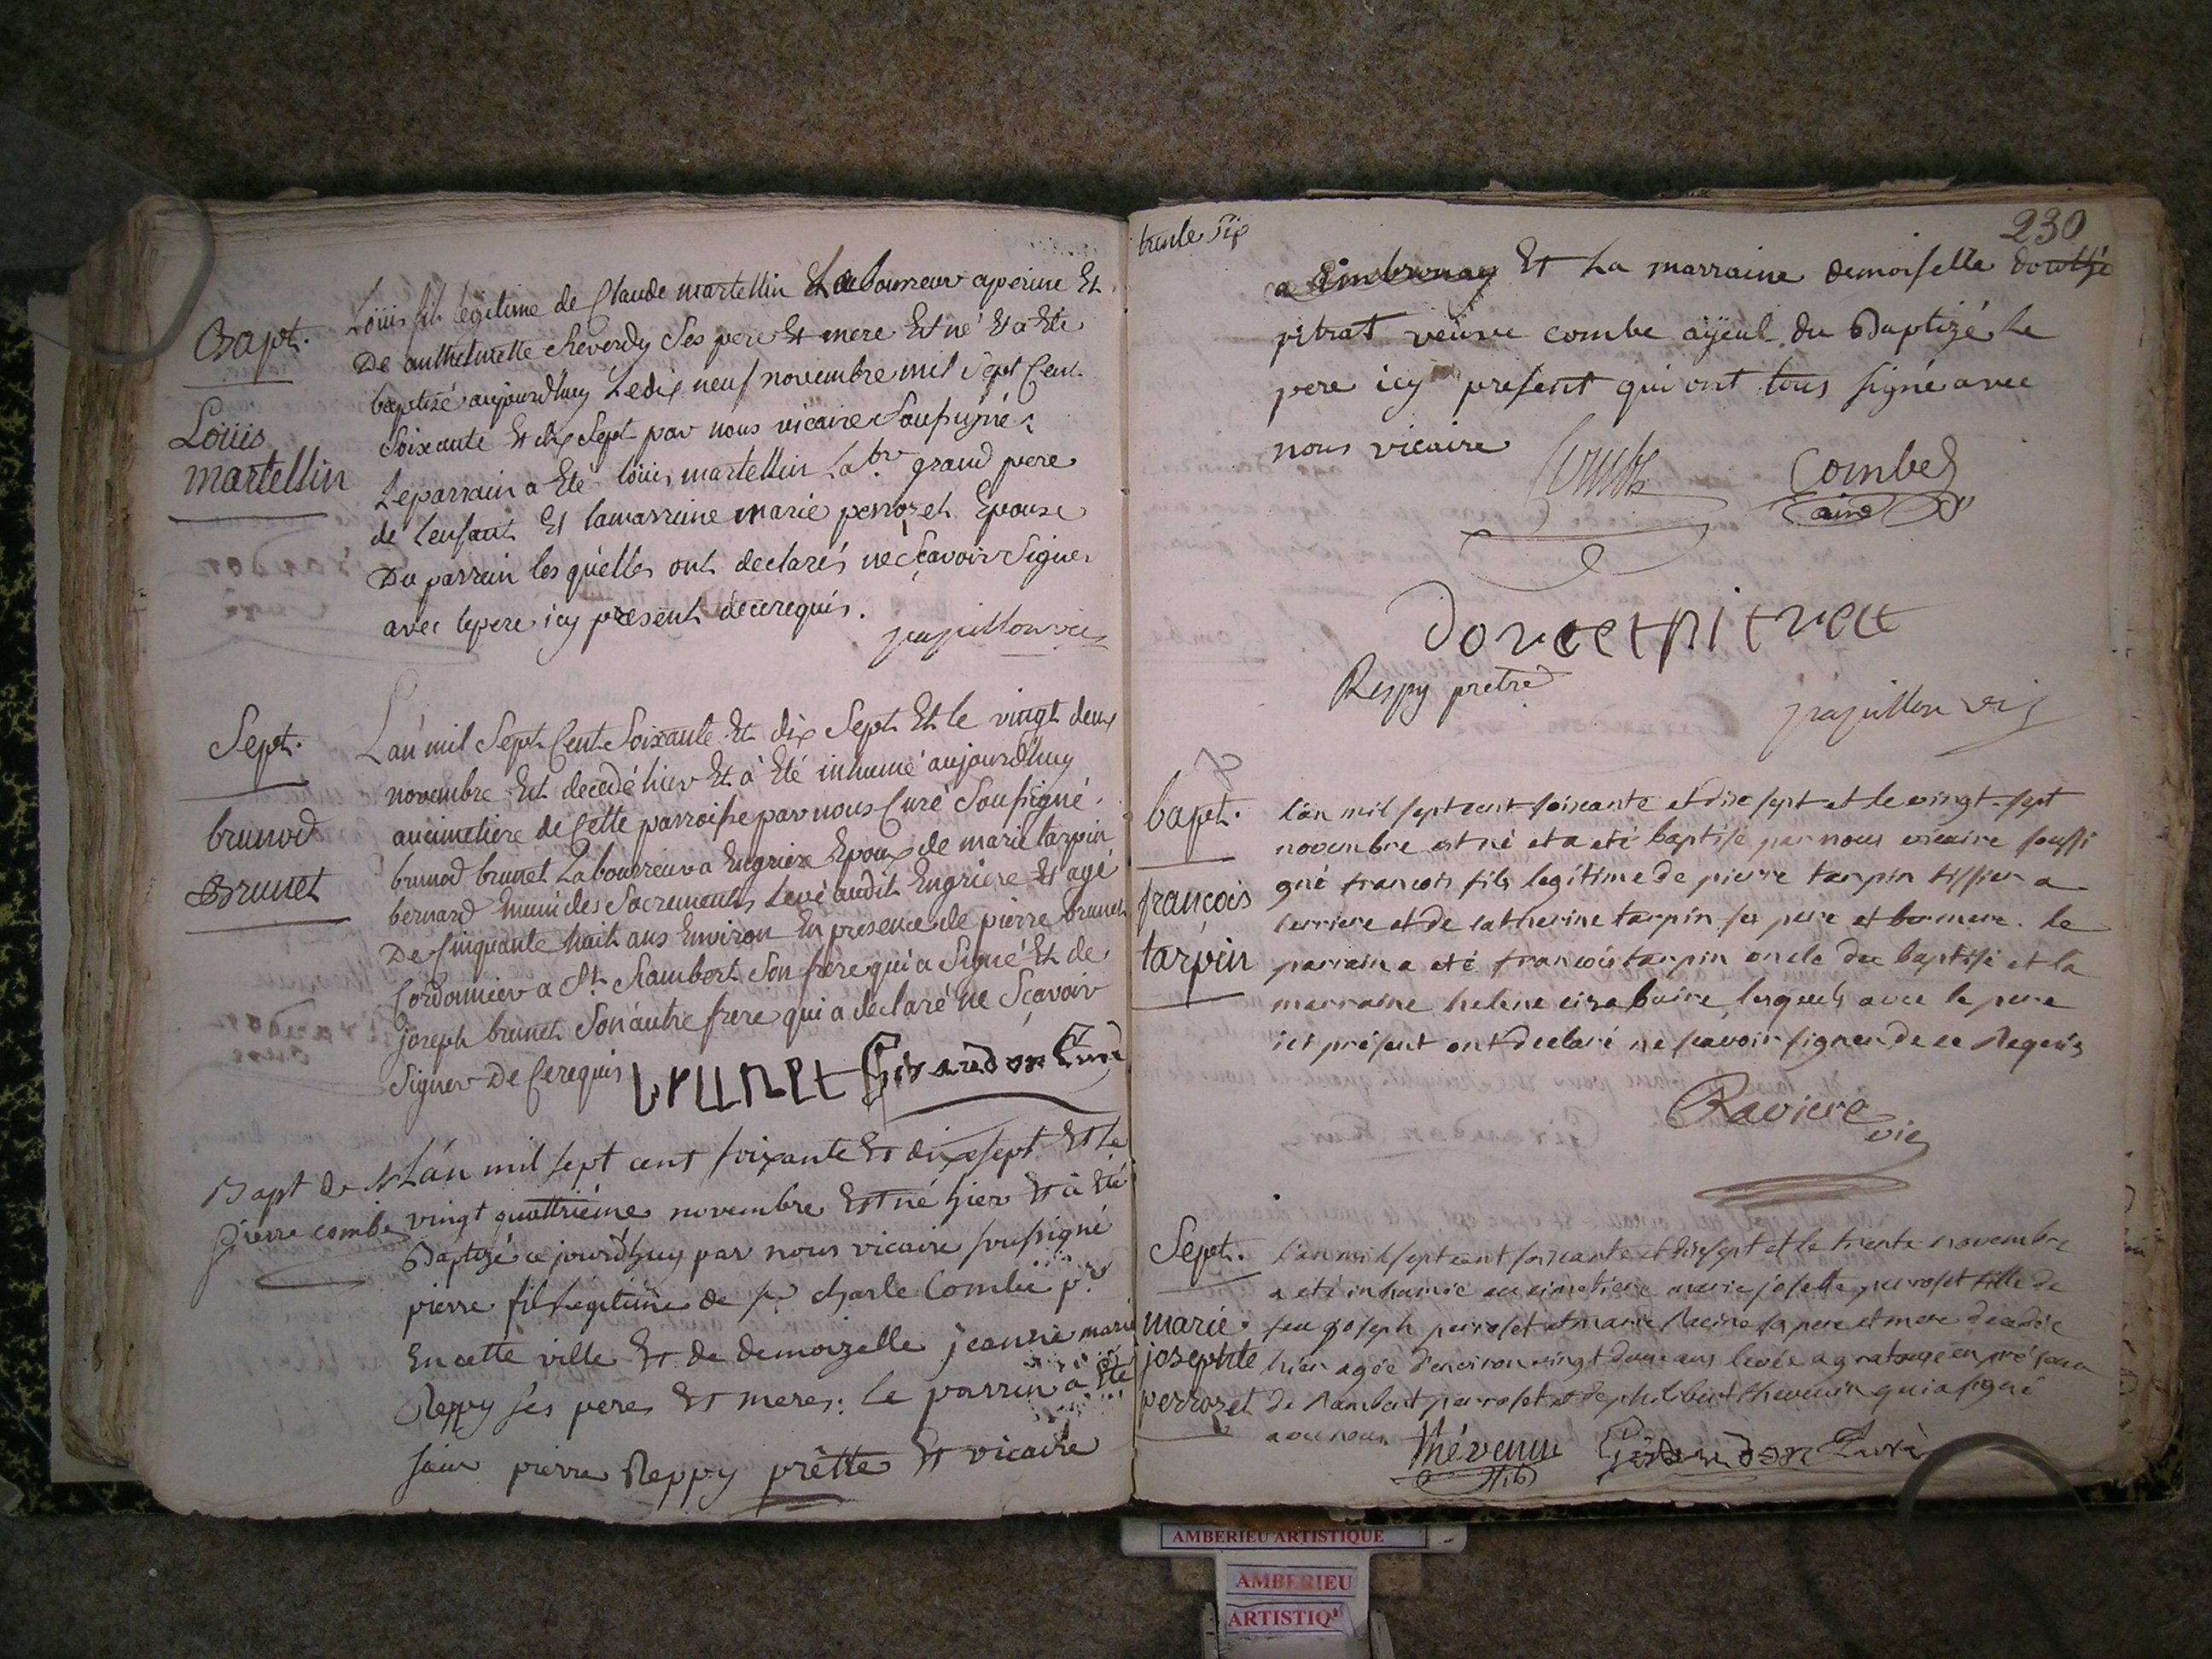 Bapt.
Loüis
martellin
Loüis fils légitime de Claude martellin Laboureur aperine Et
De anthelmette Reverdy Ses pere Et mere Est né Et a Ete
baptisé aujourdhuy Ledix neuf novembre mil Sept Cent
Soixante Et dix Sept par nous vicaire Soussigné :
Leparrain a Eté loüis martellin Labr grand pere
de lenfant Et lamarraine marie perrozet Epouse
Du parrain les quelles ont declarés ne Sçavoir Signer
avec lepere icy present decerequis.
papillon vic
Sept.
brunod
Brunet
L'an mil Sept Cent Soixante Et dix Sept Et le vingt deux
novembre Est decedé hier Et à Eté inhumé aujourdhuy
aucimetiere de Cette parroisse par nous Curé Soussigné
brunod brunet Laboureur a Engriere Epoux de marie tarpin
bernard muni des Sacrements Levé audit Engriere Et agé
De Cinquante huit ans Environ En presence de pierre brunet
Cordonnier a St. Rambert Son frere qui a Signé Et de
joseph brunet Son autre frere qui a declaré ne Sçavoir
Signer De Cerequis brunet Girardon Curé
Bapt de
pierre combe
L'an mil sept cent soixante Et dix sept Et le
vingt quattriéme novembre Est né hier Et à Eté
Baptizé ce jourd'huy par nous vicaire soussigné
pierre fils legitime de sr charle Combe pr
En cette ville Et de demoizelle jeanne marie
Reppy sés peres Et meres: le parrin à Eté
sieur pierre Reppy prêtte Et vicaire
trente Six
230
a Ambronay Et La marraine demoiselle dorothée
pitrat veüve combe ayeul du Baptizé le
pere icy present qui ont tous signé avec
nous vicaire
Combe Combe
ainé
dorotet pitrat
Respy pretre
papillon vic
bapt.
francois
tarpin
l'an mil sept cent soixante et dix sept et le vingt-sept
novembre est né et a eté baptisé par nous vicaire soussi
gné francois fils legitime de pierre tarpin tissier a
serriere et de catherine tarpin ses pere et mere. le
parrain a eté francois tarpin oncle du baptisé et la
marraine helene lesquels avec le pere
ici présent ont declaré ne scavoir signer de ce Requis
Raviere
vic
Sept.
marie
josephte
perrozet
l'an mil sept cent soixante et dix sept et le trente novembre
a eté inhumée au cimetiere marie josephte perroset fille de
feu joseph perroset et marie Racine sa pere et mere decedée
hier agée d'environ vingt deux ans levée a en présence
de Rambert perroset et de philibert thevenin qui a signé
avec nous
thévenin Girardon Curé
fils
AMBERIEU ARTISTIQUE
AMBERIEU
ARTISTIQ